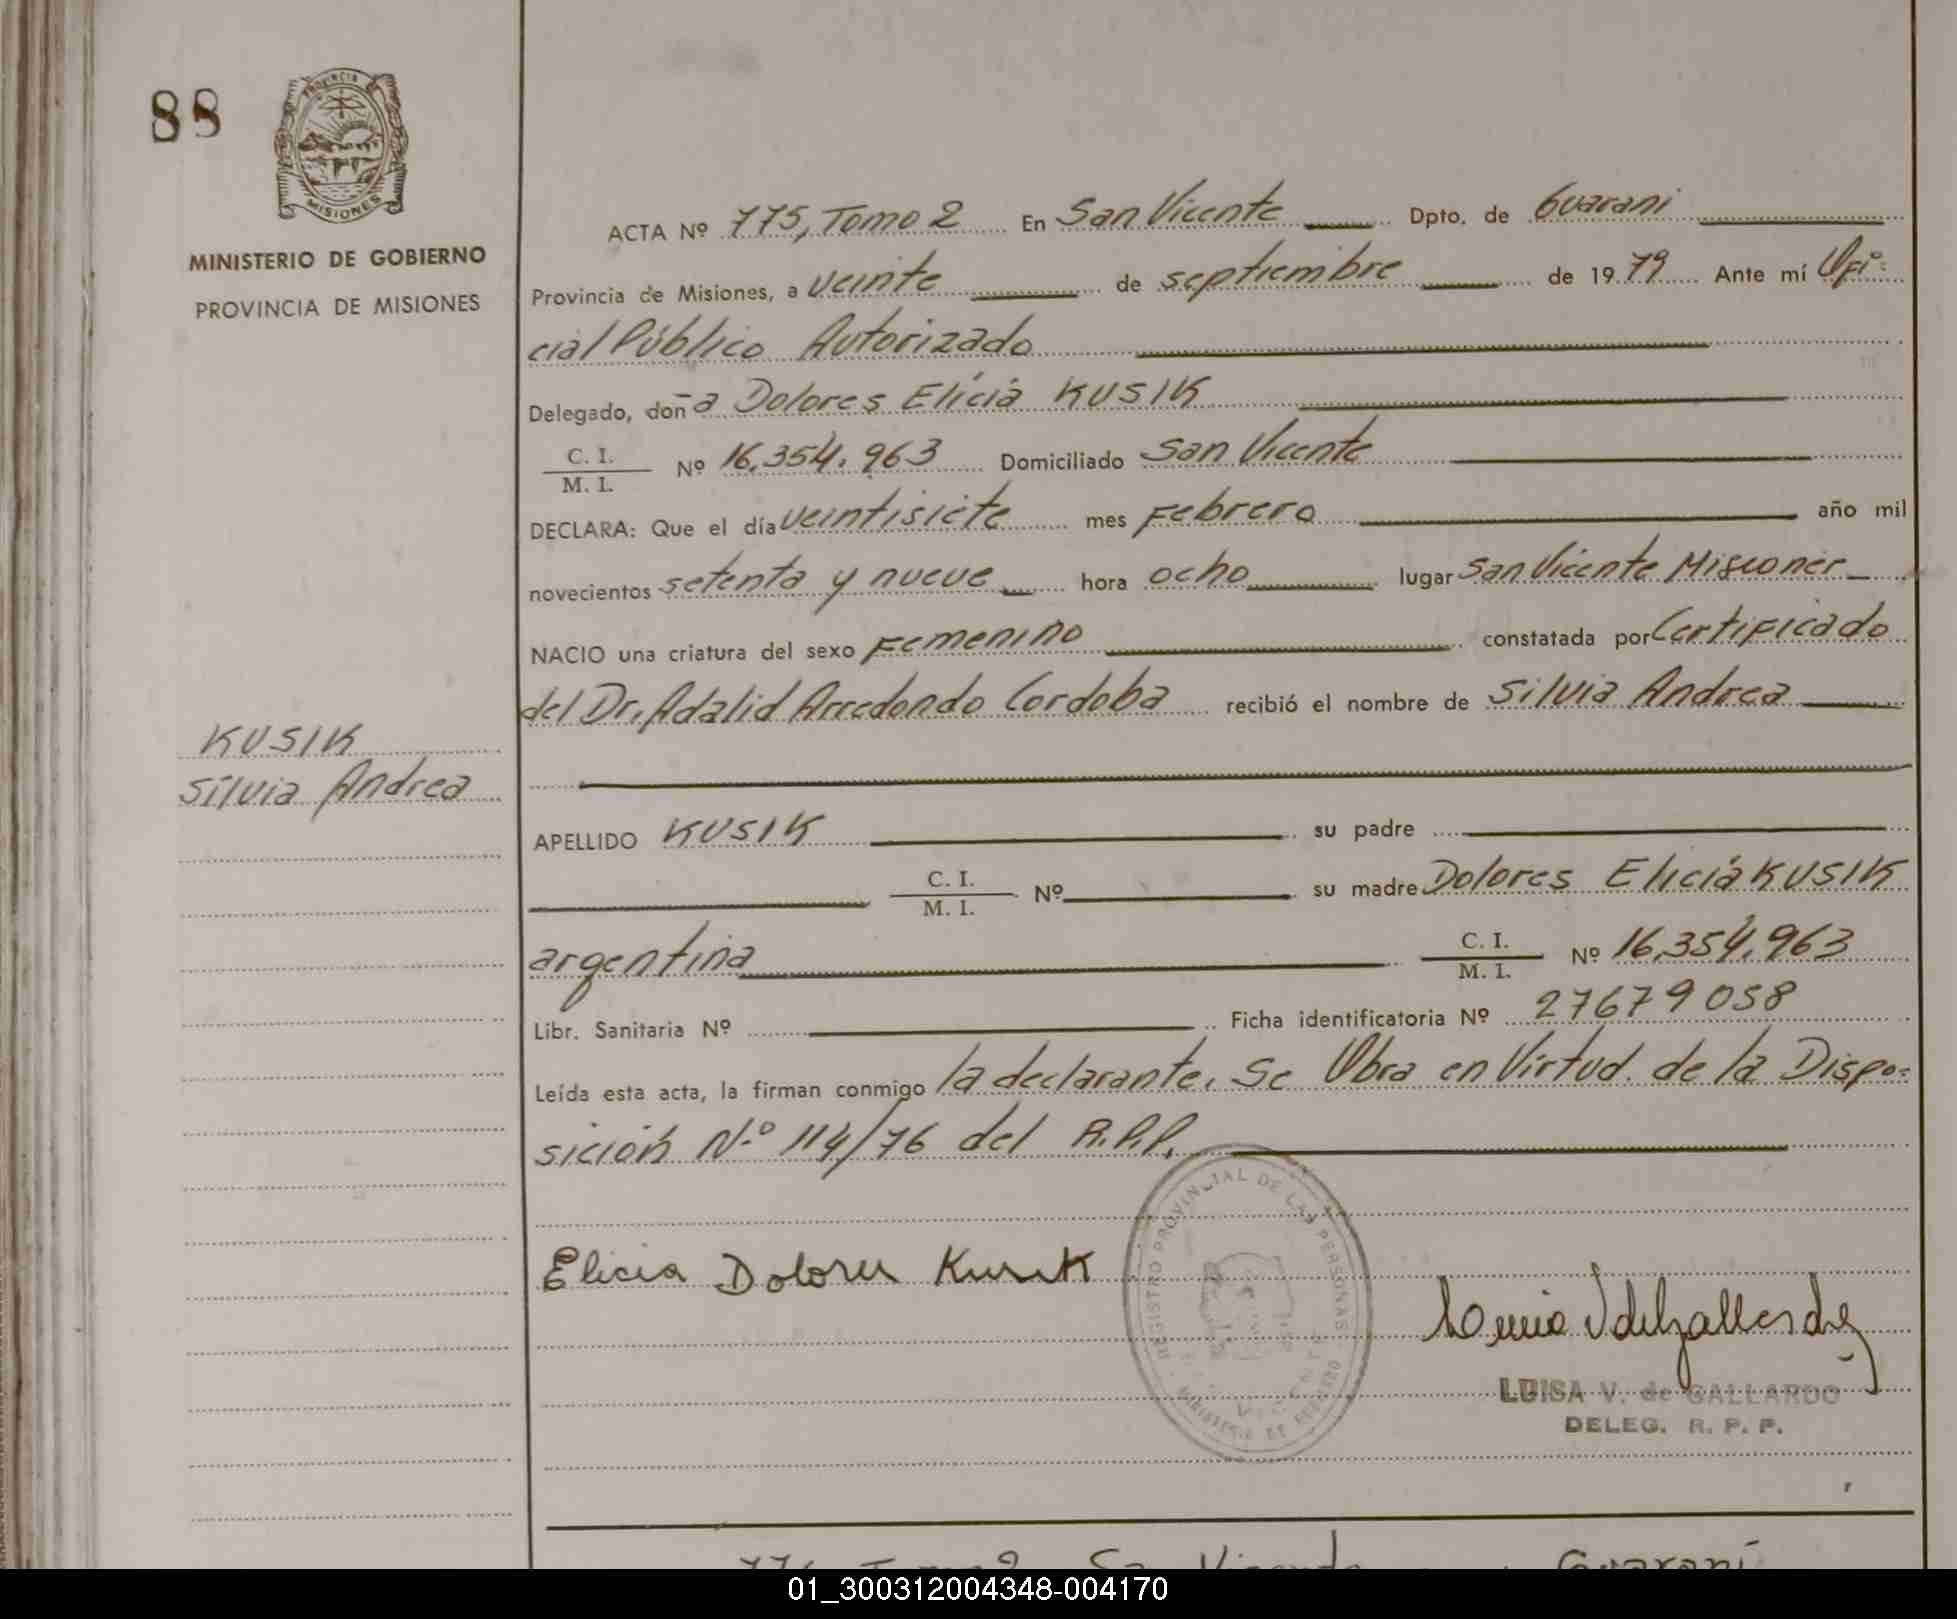 88
PROVINCIA DE
MISIONES
MINISTERIO DE GOBIERNO
PROVINCIA DE MISIONES
ACTA Nº 775, Tomo 2 En San Vicente Dpto. de Guarani
Provincia de Misiones, a veinte de septiembre de 1979 Ante mí Ofi-
cial Público Autorizado
Delegado, doña Dolores Elicia KUSIK
C. I.
M. I. Nº 16.354.963 Domiciliado San Vicente
DECLARA: Que el día veintisiete mes Febrero año mil
novecientos setenta y nueve hora ocho lugar San Vicente Misiones
NACIO una criatura del sexo Femenino constatada por Certificado
del Dr. Adalid Arredondo Cordoba recibió el nombre de Silvia Andrea
KUSIK
Silvia Andrea
APELLIDO KUSIK su padre
C. I.
M. I. Nº su madre Dolores Elicia KUSIK
argentina C. I.
M. I. Nº 16.354.963
Libr. Sanitaria Nº Ficha identificatoria Nº 27679058
Leída esta acta, la firman conmigo la declarante. Se Obra en Virtud. de la Dispo-
sición N.º 114/76 del R.P.P.
REGISTRO PROVINCIAL DE LAS PERSONAS
MINISTERIO DE GOBIERNO
Elicia Dolores Kusik
LUISA V. de GALLARDO
DELEG. R. P. P.
Tomo 2 San Vicente Guaraní
01_300312004348-004170